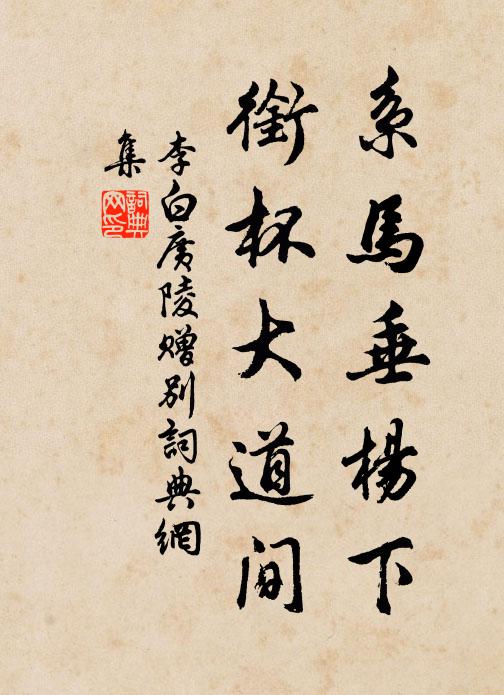 系馬垂楊下
銜杯大道間
李白廣陵贈別詞典網
集
詞典網印